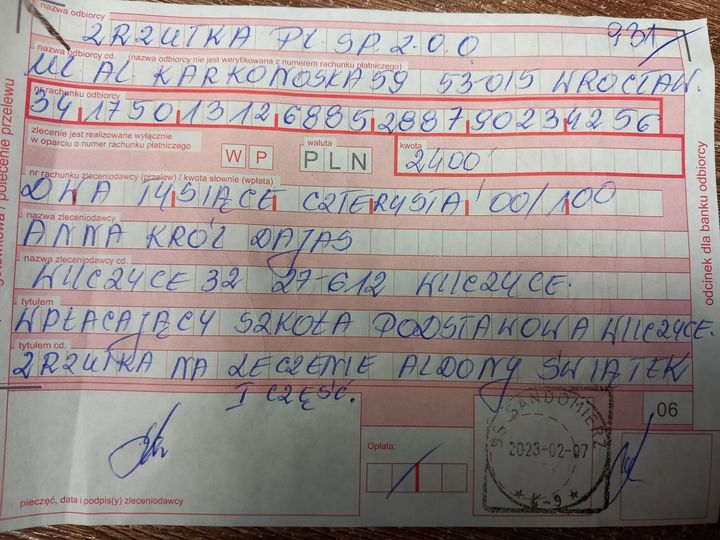 nazwa odbiorcy
ZRZUTKA PL. SP. Z. O. O 931
nazwa odbiorcy cd. (nazwa odbiorcy nie jest weryfikowana z numerem rachunku płatniczego)
UL. AL. KARKONOSKA 59 53-015 WROCŁAW.
nr rachunku odbiorcy
34 1750 1312 6885 2887 9023 4256
zlecenie jest realizowane wyłącznie
w oparciu o numer rachunku płatniczego
W P
waluta
PLN
kwota
2400
nr rachunku zleceniodawcy (przelew) / kwota słownie (wpłata)
DWA TYSIĄCE CZTERYSTA 00/100
nazwa zleceniodawcy
ANNA KRÓL DAJAS
nazwa zleceniodawcy cd.
WILCZYCE 32 27-612 WILCZYCE.
tytułem
WPŁACAJĄCY SZKOŁA PODSTAWOWA WILCZYCE.
tytułem cd.
ZRZUTKA NA LECZENIE ALDONY ŚWIĄTEK
I CZĘŚĆ.
06
Opłata:
SANDOMIERZ
2023-02-07
pieczęć, data i podpis(y) zleceniodawcy
polecenie przelewu
odcinek dla banku odbiorcy